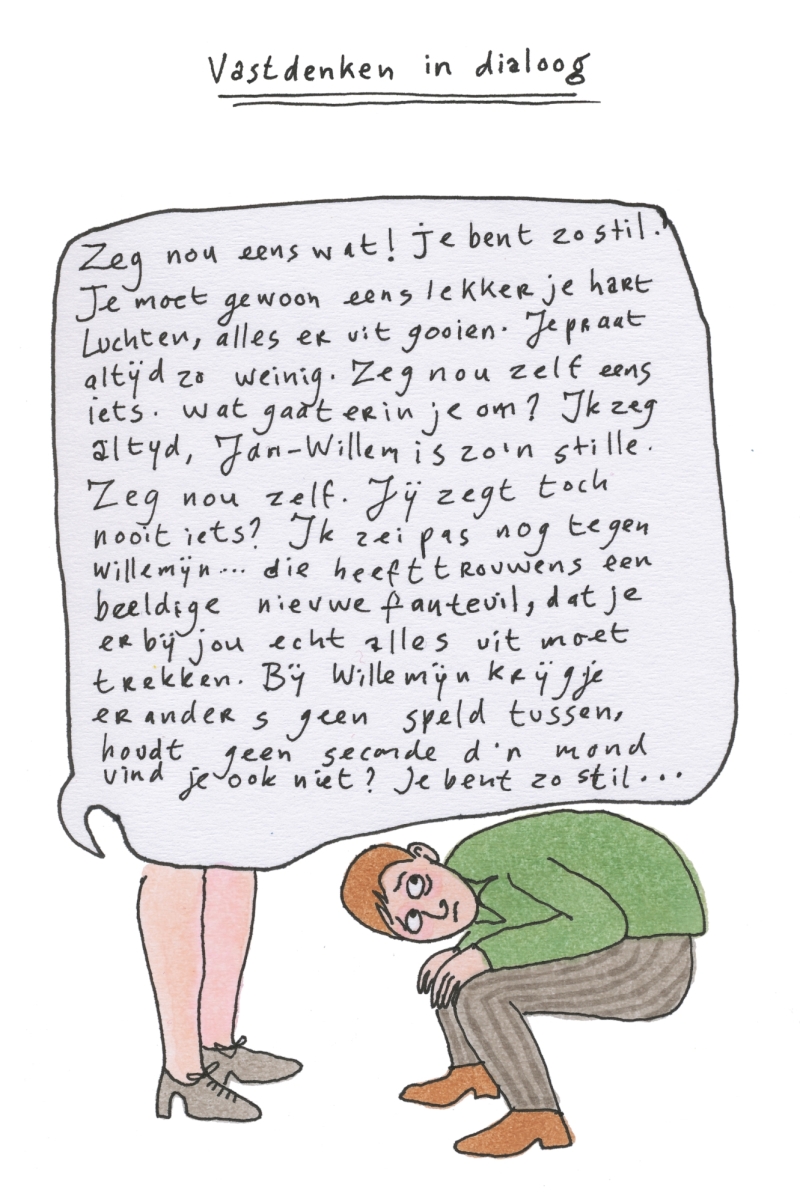 Vastdenken in dialoog
Zeg nou eens wat! Je bent zo stil.
Je moet gewoon eens lekker je hart
Luchten, alles er uit gooien. Je praat
altijd zo weinig. Zeg nou zelf eens
iets. Wat gaat er in je om? Ik zeg
altyd, Jan-Willem is zo'n stille.
Zeg nou zelf. Jij zegt toch
nooit iets? Ik zei pas nog tegen
Willemijn... die heeft trouwens een
beeldige nieuwe fauteuil, dat je
er bij jou echt alles uit moet
trekken. Bij Willemijn krijg je
er anders geen speld tussen,
houdt geen seconde d'n mond
vind je ook niet? Je bent zo stil...